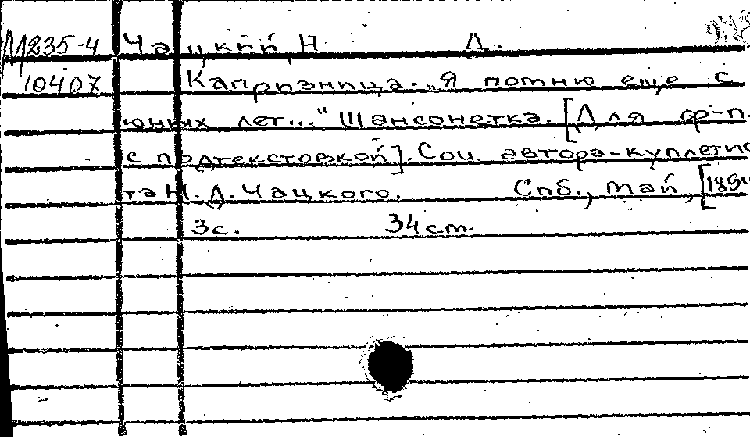 М235-4 Чацкий, Н. Д.
10407 Капризница. „Я помню еще с
юных лет..." Шансонетка. [Для ф-п.
с подтекстовкой]. Соч. автора-куплетис
та Н. Д. Чацкого. Спб., Май, [189
3с. 34 ст.